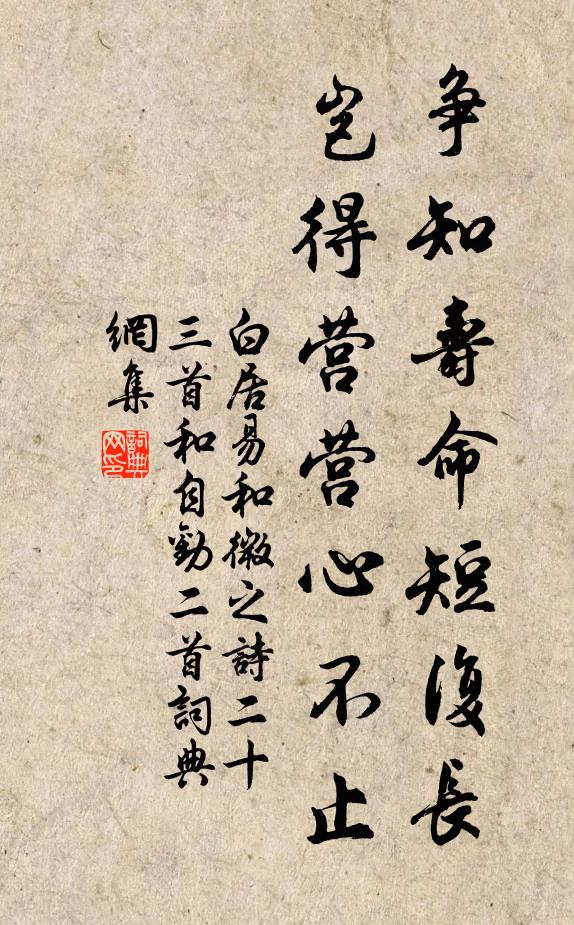 争知壽命短復長
岂得营营心不止
白居易和微之詩二十
三首和自勸二首詞典
網集
詞典
网印